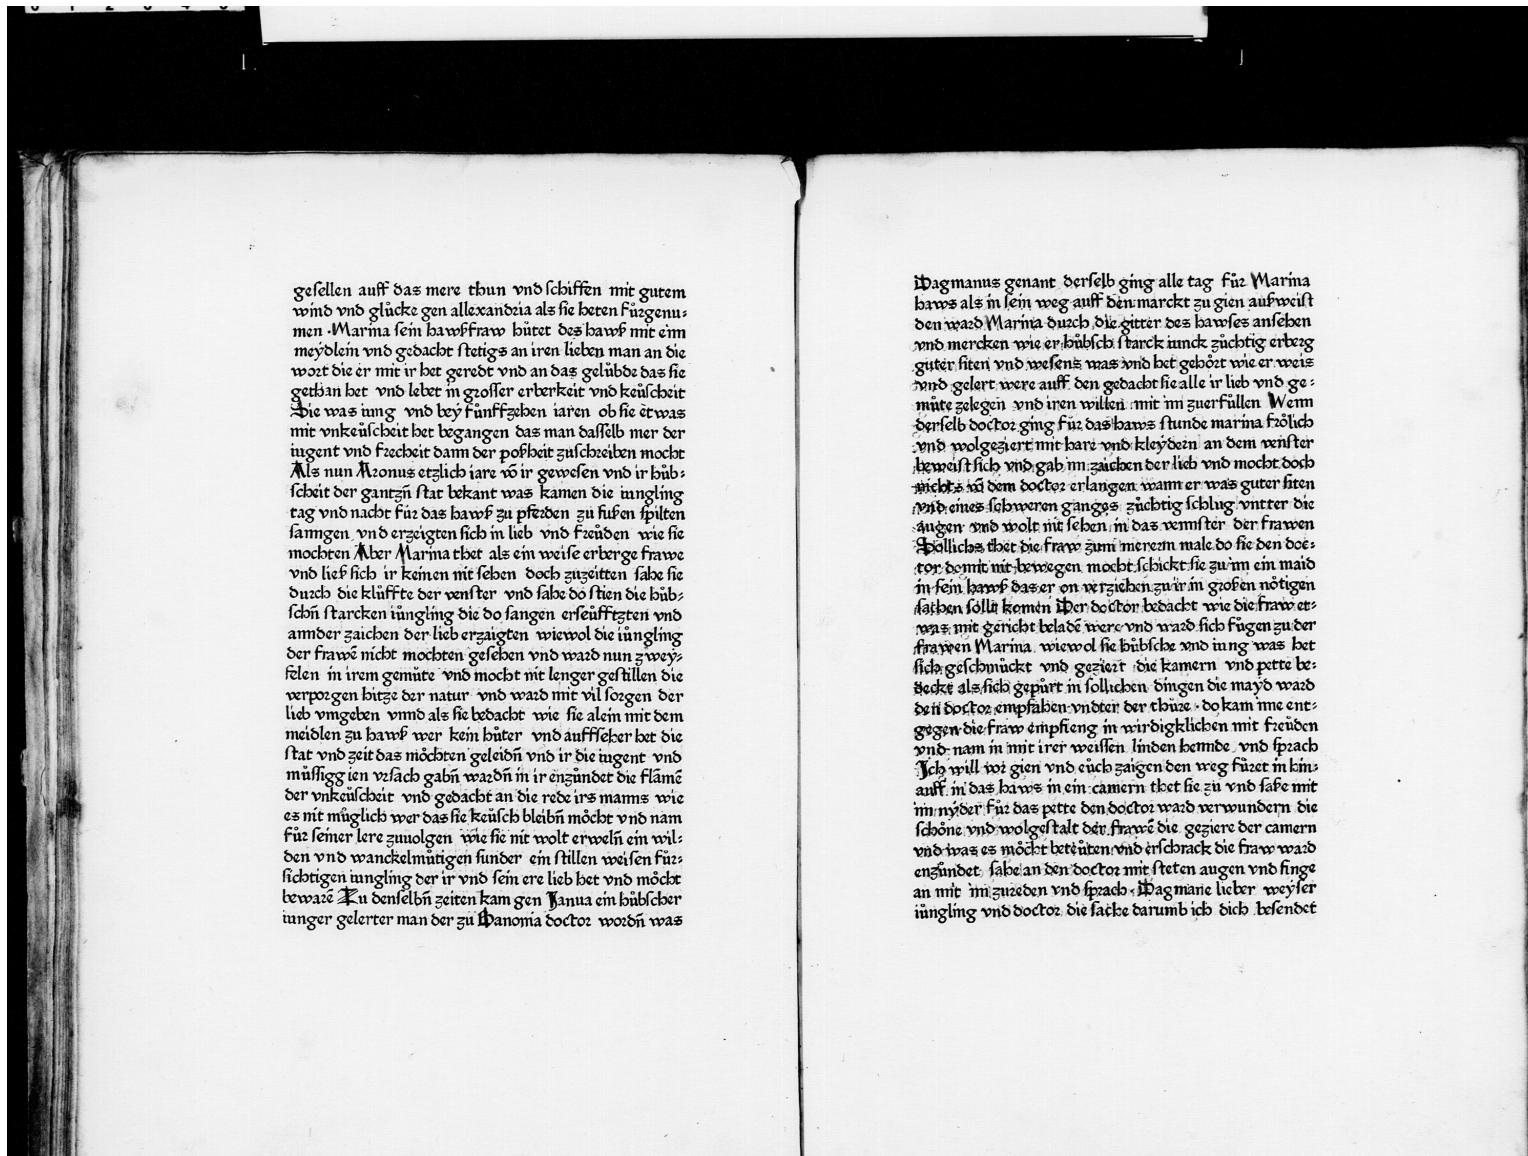 gesellen auff das mere thun vnd schiffen mit gutem
wind vnd glůcke gen allexandria als sie heten fůrgenu-
men · Marina sein hawßfraw hůtet des hawß mit eim
meydlein vnd gedacht stetigs an iren lieben man an die
wort die er mit ir het geredt vnd an das gelůbde das sie
gethan het vnd lebet in grosser erberkeit vnd keůscheit
Sie was iung vnd bey fůnffzehen iaren ob sie etwas
mit vnkeůscheit het begangen das man dasselb mer der
iugent vnd frecheit dann der poßheit zuschreiben mocht
Als nun Aronus etzlich iare vō ir gewesen vnd ir hůb-
scheit der gantzn̄ stat bekant was kamen die iungling
tag vnd nacht fůr das hawß zu pferden zu fußen spilten
sanngen vnd erzeigten sich in lieb vnd freůden wie sie
mochten Aber Marina thet als ein weise erberge frawe
vnd ließ sich ir keinen nit sehen doch zuzeitten sahe sie
durch die klůffte der venster vnd sahe do stien die hůb-
schn̄ starcken iůngling die do sangen erseůfftzten vnd
annder zaichen der lieb erzaigten wiewol die iůngling
der frawē nicht mochten gesehen vnd ward nun zwey-
felen in irem gemůte vnd mocht nit lenger gestillen die
verporgen hitze der natur vnd ward mit vil sorgen der
lieb vmgeben vnnd als sie bedacht wie sie alein mit dem
meidlen zu hawß wer kein hůter vnd auffseher het die
stat vnd zeit das mőchten geleidn̄ vnd ir die iugent vnd
můssigg ien vrsach gabn̄ wardn̄ in ir enzůndet die flāmē
der vnkeůscheit vnd gedacht an die rede irs manns wie
es nit můglich wer das sie keůsch bleibn̄ mőcht vnd nam
fůr seiner lere zuuolgen wie sie nit wolt erweln̄ ein wil-
den vnd wanckelmůtigen sunder ein stillen weisen fůr-
sichtigen iungling der ir vnd sein ere lieb het vnd mőcht
bewarē Zu denselbn̄ zeiten kam gen Janua ein hůbscher
iunger gelerter man der zů Banonia doctor wordn̄ was
Dagmanus genant derselb ging alle tag fůr Marina
haws als in sein weg auff den marckt zu gien außweist
den ward Marina durch die gitter des hawses ansehen
vnd mercken wie er hůbsch starck iunck zůchtig erberg
guter siten vnd wesens was vnd het gehőrt wie er weis
vnd gelert were auff den gedacht sie alle ir lieb vnd ge-
můte zelegen vnd iren willen mit im zuerfůllen Wenn
derselb doctor ging fůr das haws stunde marina frőlich
vnd wolgeziert mit hare vnd kleydern an dem venster
beweist sich vnd gab im zaichen der lieb vnd mocht doch
nichts vō dem doctor erlangen wann er was guter siten
vnd eines schweren ganges zůchtig schlug vntter die
augen vnd wolt nit sehen in das vennster der frawen
Sollichs thet die fraw zum mererm male do sie den doc-
tor domit nit bewegen mocht schickt sie zu im ein maid
in sein hawß das er on verziehen zu ir in großen nőtigen
sachen sollt komen Der doctor bedacht wie die fraw et-
was mit gericht beladē were vnd ward sich fůgen zu der
frawen Marina wiewol sie hůbsche vnd iung was het
sich geschmůckt vnd geziert die kamern vnd pette be-
deckt als sich gepůrt in sollichen dingen die mayd ward
den doctor empfahen vndter der thůre · do kam ime ent-
gegen die fraw empfieng in wirdigklichen mit freůden
vnd nam in mit irer weissen linden hennde vnd sprach
Ich will vor gien vnd eůch zaigen den weg fůret in hin-
auff in das haws in ein camern thet sie zu vnd saße mit
im nyder fůr das pette den doctor ward verwundern die
schőne vnd wolgestalt der frawē die geziere der camern
vnd was es mőcht beteůten vnd erschrack die fraw ward
enzůndet sahe an den doctor mit steten augen vnd finge
an mit im zureden vnd sprach · Dagmane lieber weyser
iůngling vnd doctor die sache darumb ich dich besendet